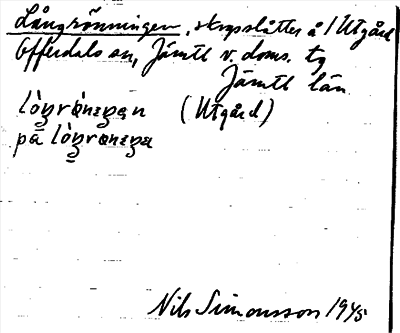 Långrönningen, skogsslåtter å /Utgård
Offerdals sn, Jämtl v. doms. tg
Jämtl län
lòŋrǿnɪŋən (Utgård)
på lòŋrǿnɪŋa
Nils Simonsson 1945